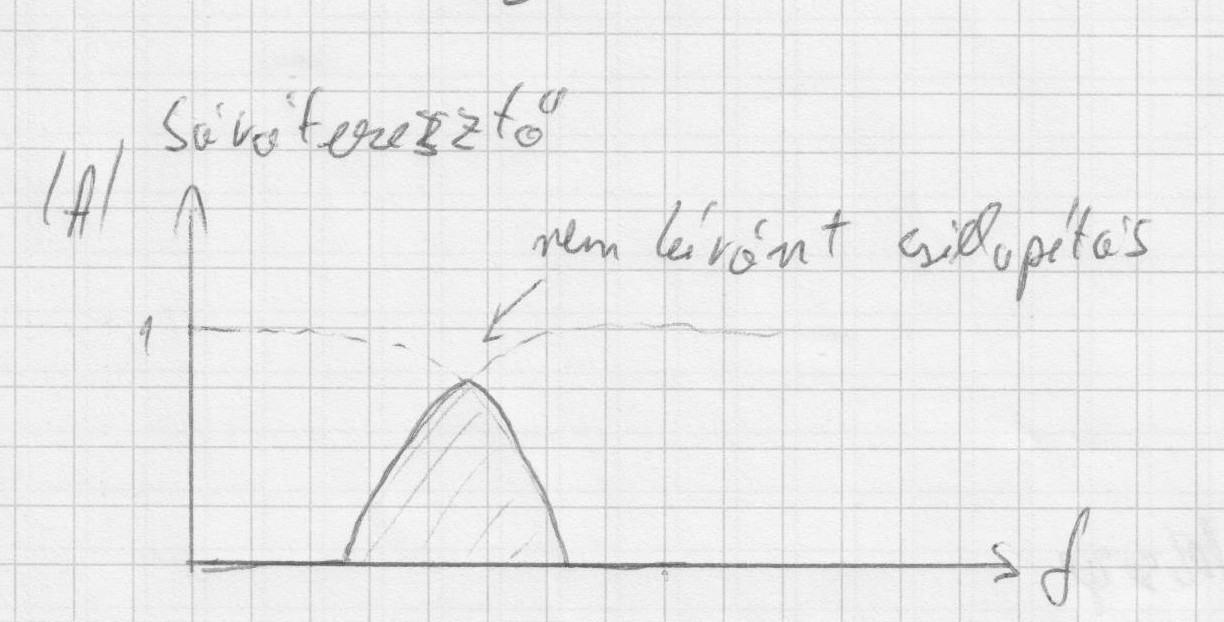 Sáváteresztő
|A|
nem kívánt csillapítás
1
f